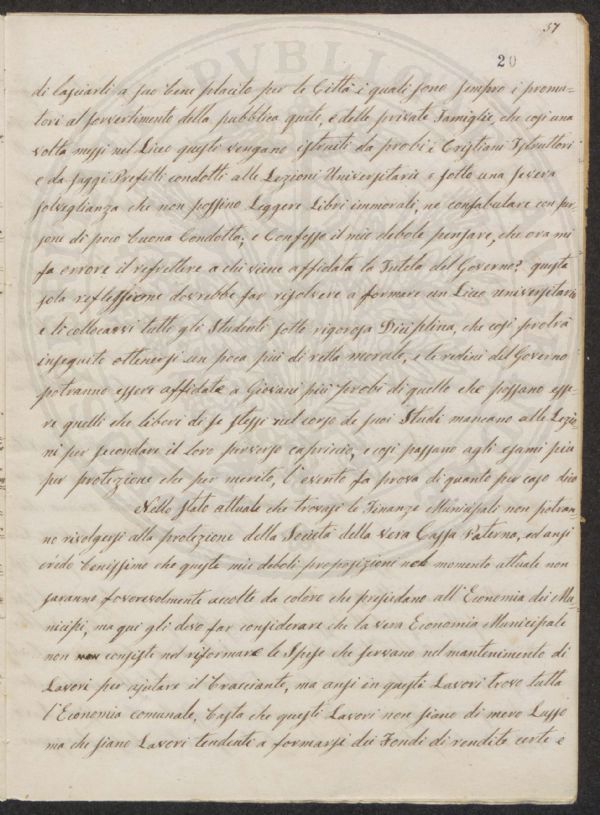 57
20
di lasciarli a suo bene placito per le Città i quali sono sempre i promo=
tori al sovvertimento della pubblica quete, e delle private Famiglie, che così una
volta messi nel Liceo questi vengano istruiti da probi e Cristiani Istruttori
e da saggi Prefetti condotti alle Lezioni Universitarie e sotto una severa
solveglianza che non possino Leggere Libri immorali, ne confabulare con per
sone di poco buona Condotta; e Confesso il mio debole pensare, che ora mi
fa errore il refrettere a chi viene affidata la Tutela del Governo? questa
sola reflessione dovrebbe far risolvere a formare un Liceo universitario
e li collocarvi tutti gli Studenti sotto rigorosa Diciplina, che così protrà
inseguito ottenersi un poca più di retta morale, e le redini del Governo
potranno essere affidate a Giovani più probi di quello che possano esse=
re quelli che liberi di se stessi nel corso de suoi Studi mancano alle Lezio
ni per secondare il loro perverso capriccio, e così passano agli esami più
per protezione che per merito, l'evento fa prova di quanto per caso dico
Nello stato attuale che trovasi le Finanze Municipali non potran
no rivolgersi alla protezione della Società della vera Cassa Paterna, ed anzi
credo benissimo che queste mie deboli proposizioni nel momento attuale non
saranno fovorevolmente accolte da coloro che presiedano all'Economia dei Mu=
nicipi, ma qui gli devo far considerare che la vera Economia Municipale
non consiste nel riformare le Spese che servano nel mantenimento di
Lavori per ajutare il bracciante, ma anzi in questi Lavori trovo tutta
l'Economia comunale, basta che questi Lavori non siano di mero Lusso
ma che siano Lavori tendenti a formarsi dei Fondi di rendite certe e